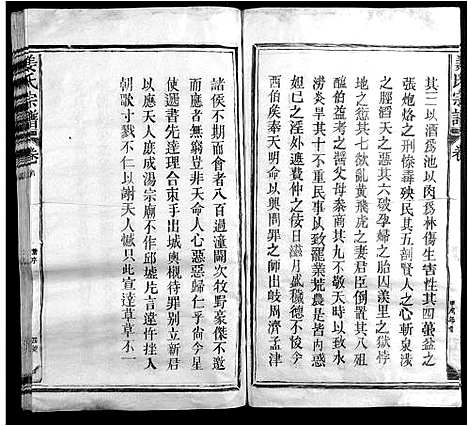 姜氏宗譜
卷
其三以酒爲池以肉爲林傷生害性其四蠆盆之
張炮烙之刑慘毒殃民其五剖賢人之心斬
之脛滔天之惡其六破孕婦之胎囚羑里之獄
之悲其七欲亂黃飛虎之妻君臣倒置其八殂
醢伯益考之醬父母黍商其九內聽
澇炎暑其十有罪不明以致罷業荒農是皆內惑
妲己之淫外遮費仲之佞日滋月盛穢德不悛今
西伯侯奉天明命以興問罪之師出岐周濟孟津
諸侯不期而會者八百過潼關次牧野豪傑不邀
者無窮豈非天命人心惡惡歸仁乎尚今星
使選書先達理合束手出城輿櫬待罪別立新君
以應天人庶成湯宗廟不作邱墟片言遠忤挫人
朝歌寸戮不仁以謝天人憾只此宣達草草不一
姜氏宗譜
卷